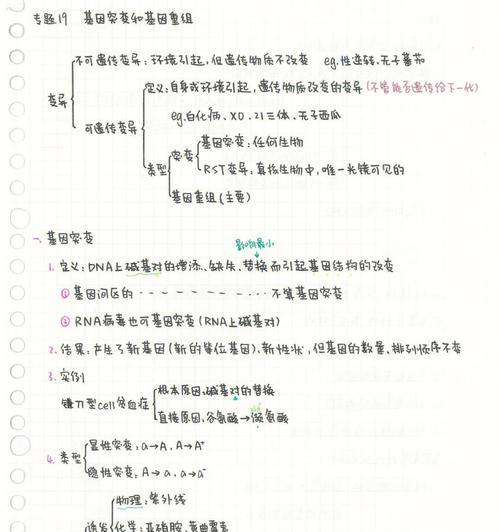 专题19 基因突变和基因重组
不可遗传变异：环境引起，但遗传物质不改变 eg.性逆转、无子番茄
变异
定义：自身或环境引起，遗传物质改变的变异（不管能否遗传给下一代）
可遗传变异
eg.白化病、XO、21三体、无子西瓜
类型
突变
基因突变：任何生物
RST变异：真核生物中，唯一光镜可见的
基因重组（主要）
一、基因突变
影响最小
1. 定义：DNA上碱基对的增添、缺失、替换而引起基因结构的改变
① 基因间区的 - - - - - - - - - - 不算基因突变
② RNA病毒也可基因突变（RNA上碱基对）
2. 结果：产生了新基因（新的等位基因）、新性状，但基因的数量、排列顺序不变
3. 实例
镰刀型cell贫血症
根本原因：碱基对的替换
直接原因：谷氨酸→缬氨酸
4. 类型
显性突变：a→A、A→A⁺
隐性突变：A→a、a→a⁻
物理：紫外线
诱发
化学：亚硝胺、黄曲霉素